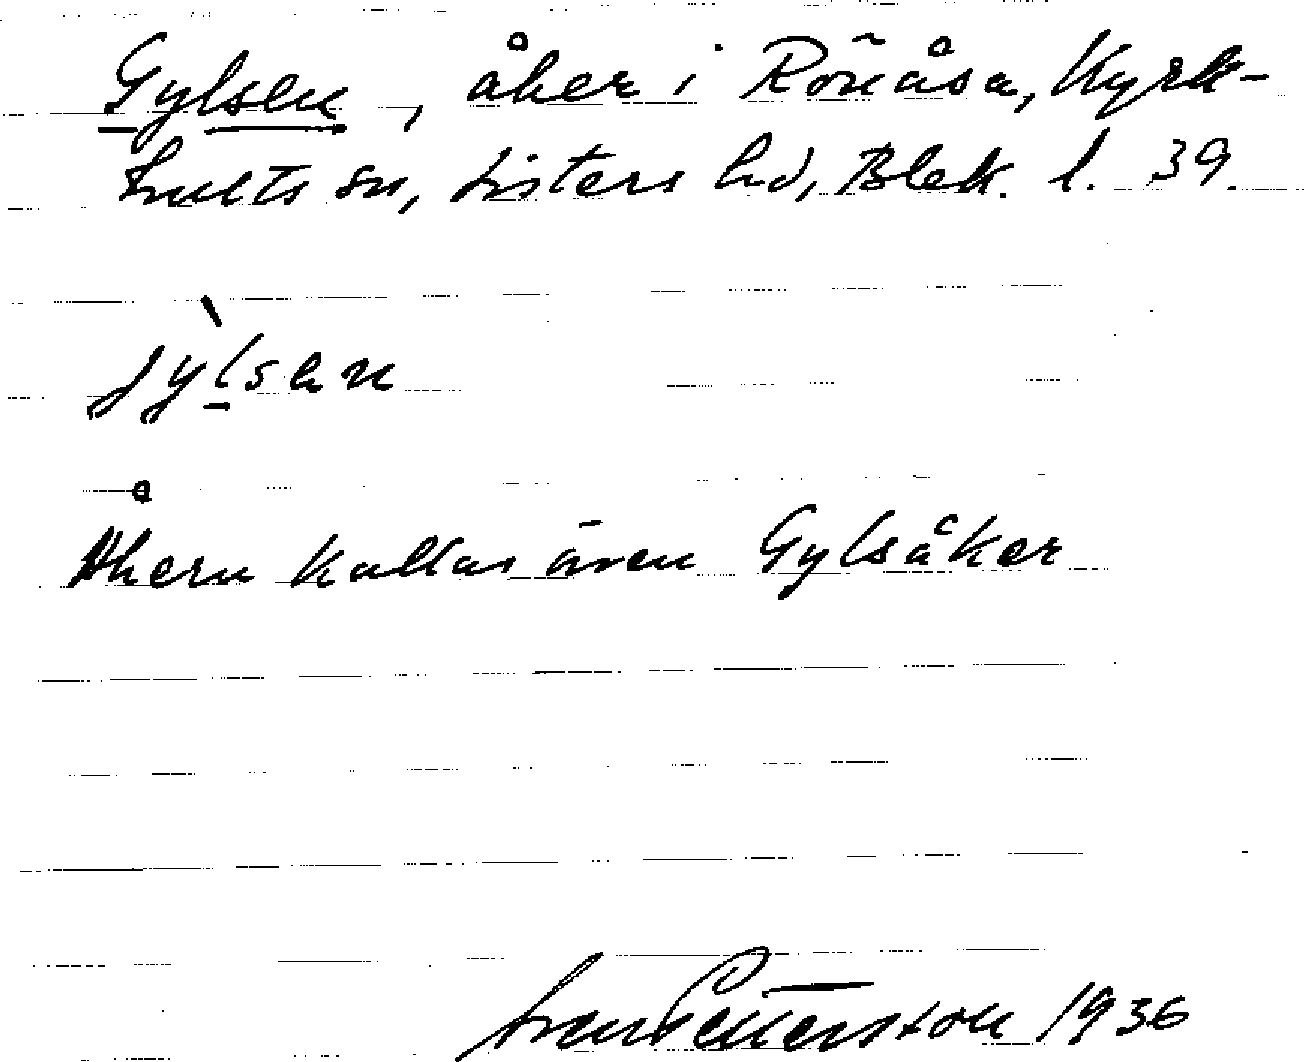 Gylsen, åker i Rönåsa, Kyrk-
hults sn, Listers hd, Blek. l. 39.
jỳlsen
Åkern kallas även Gylsåker
Sven Pettersson 1936